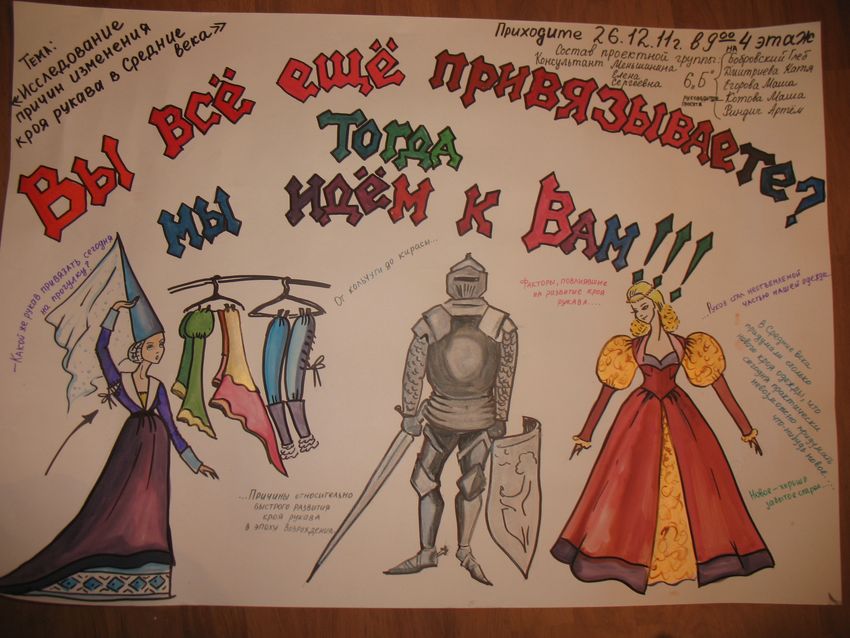 Тема:
«Исследование
причин изменения
кроя рукава в Средние
века»
Приходите 26.12.11г. в 9⁰⁰ на 4 этаж
Состав проектной группы:
Консультант Меньшинина
Елена
Сергеевна
6„Б"
руководитель
проекта
Бобровский Глеб
Дмитриева Катя
Егорова Маша
Котова Маша
Риндич Артём
Вы всё ещё привязываете?
Тогда
мы идём к Вам!!!
—Какой же рукав привязать сегодня
на прогулку?
От кольчуги до кирасы...
Факторы, повлиявшие
на развитие кроя
рукава....
...Рукав стал неотъемлемой
частью нашей одежды...
В Средние века
придумали столько
нового кроя одежды, что
сегодня практически
невозможно придумать
что-нибудь новое...
Новое-хорошо
забытое старое...
...Причины относительно
быстрого развития
кроя рукава
в эпоху Возрождения